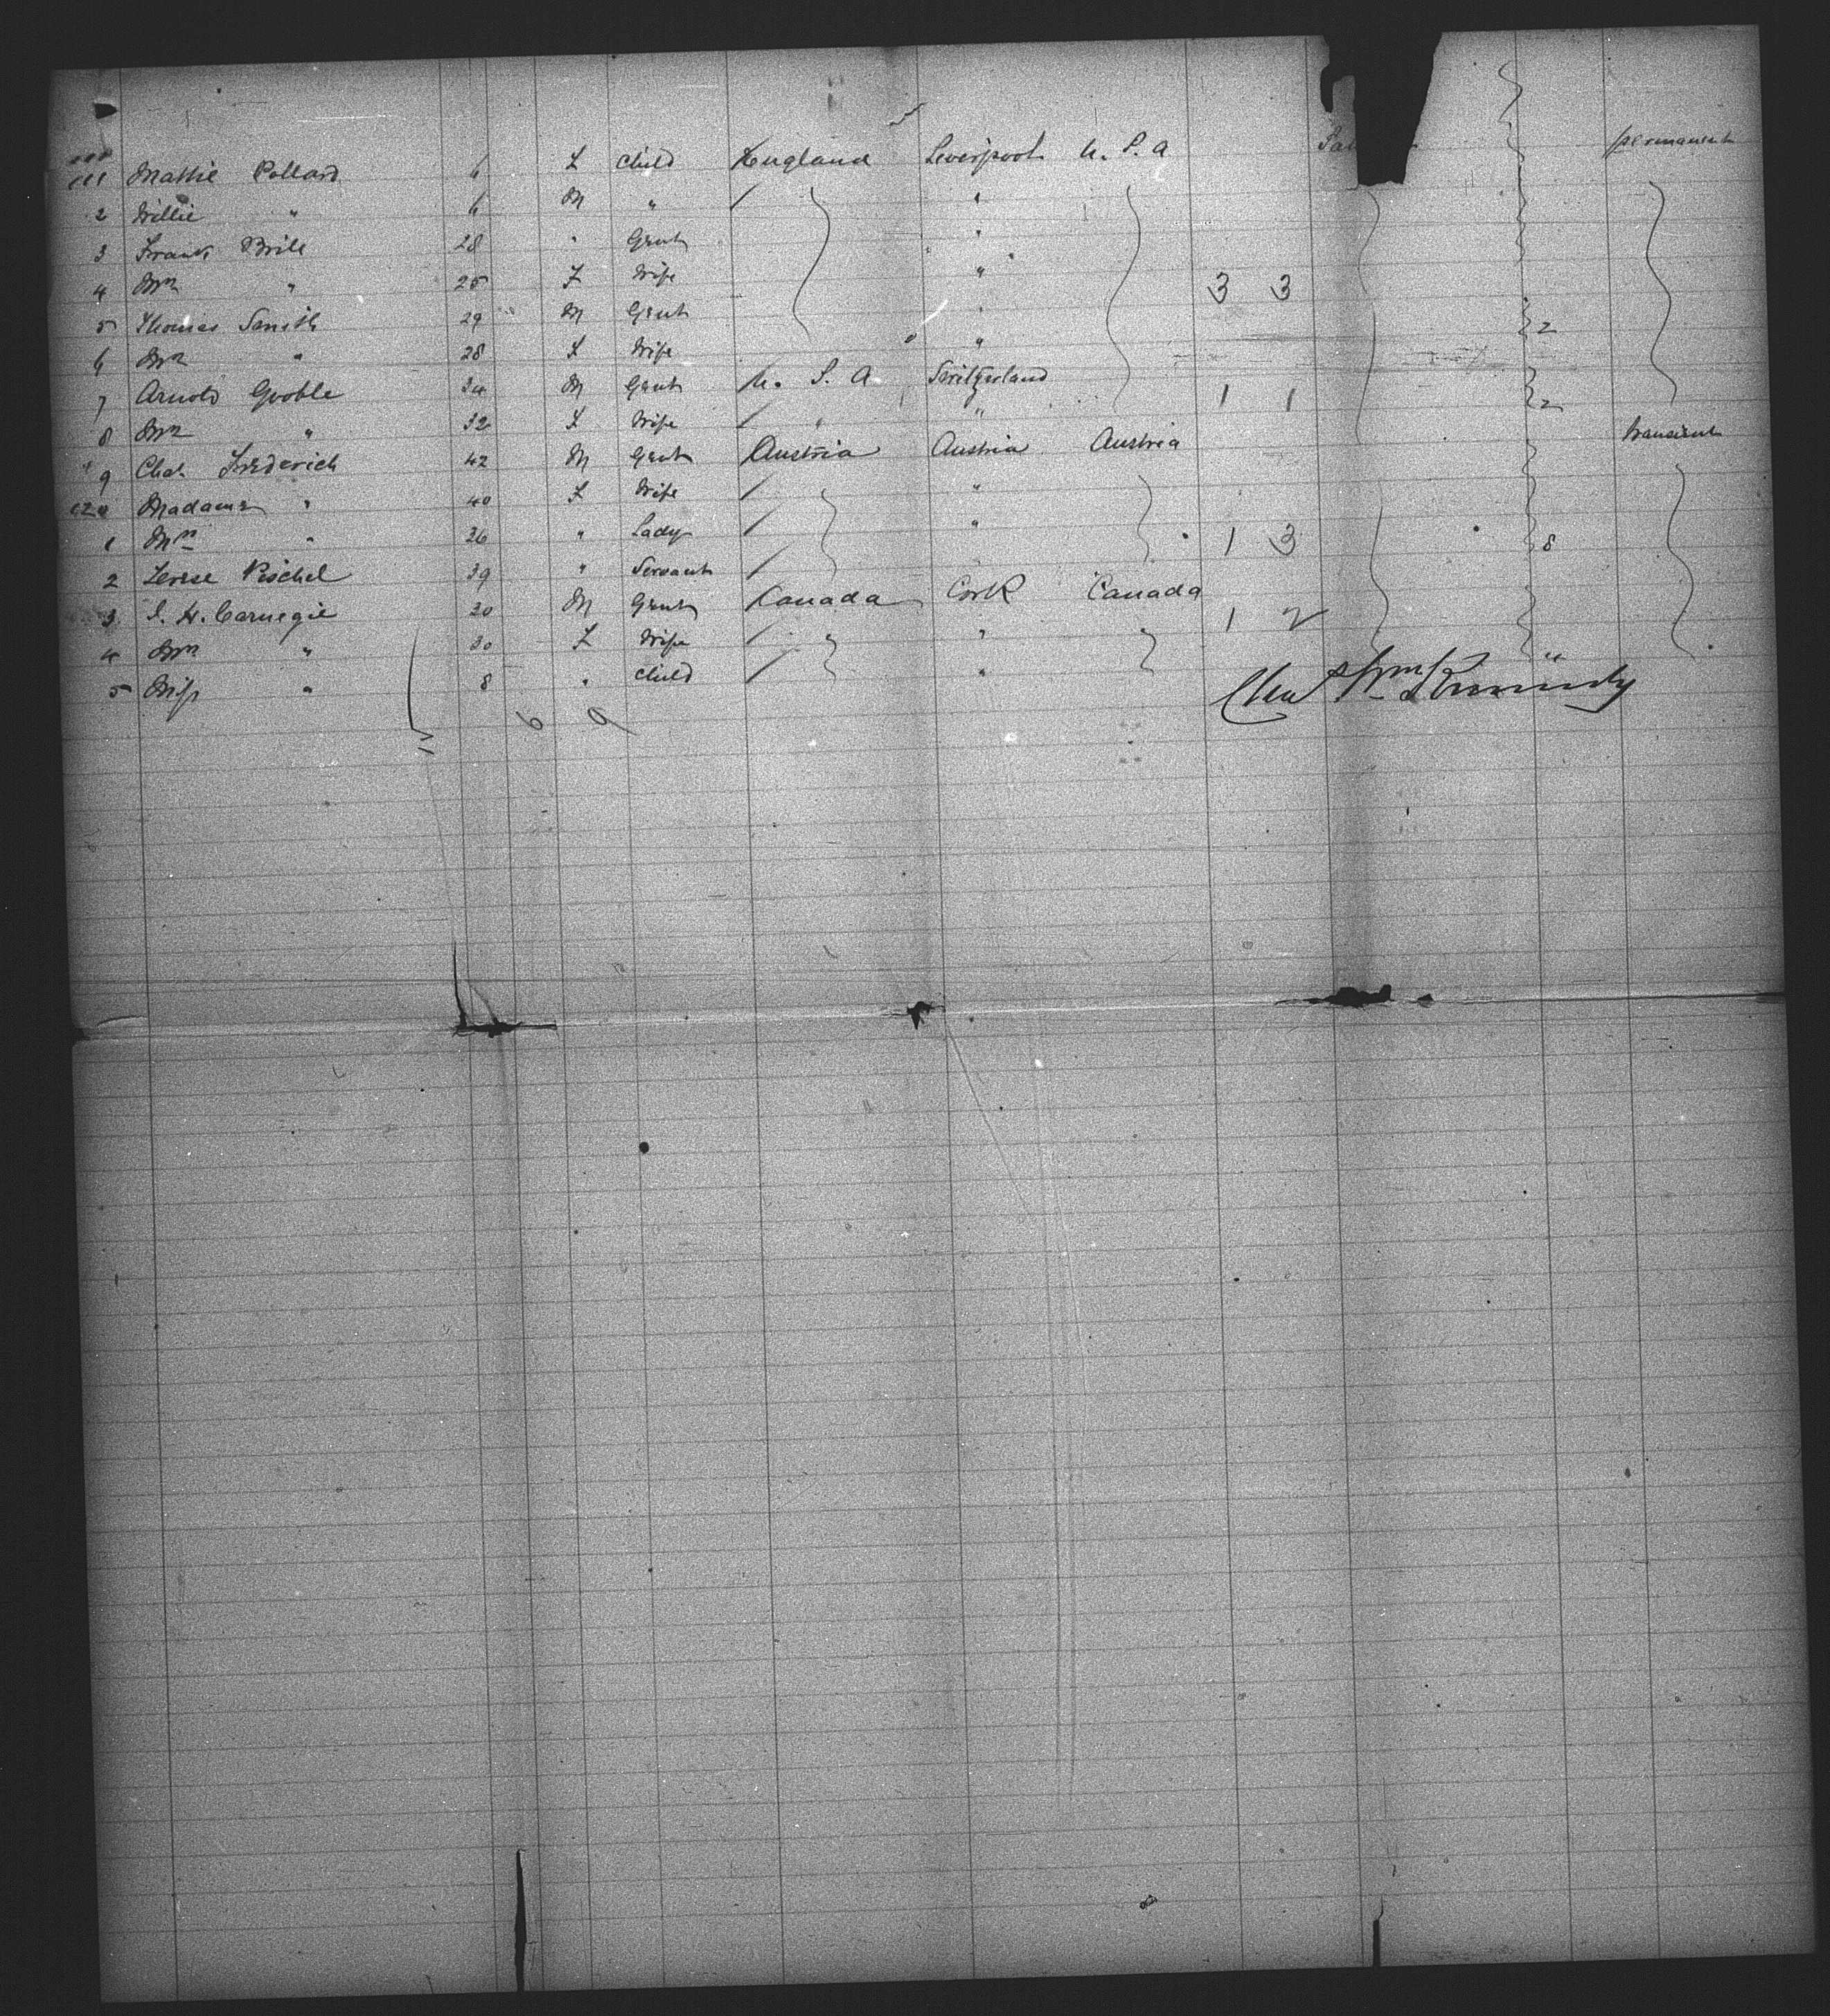 111 Mattie Pollard 6 F Child England Liverpool U. S. A permanent
2 Willie " 6 M " "
3 Frank Brill 28 " Gent "
4 Mrs " 25 F Wife " 3 3
5 Thomas Smith 29 M Gent " 2
6 Mrs " 28 F Wife "
7 Arnold 34 M Gent U. S. A Switzerland 1 1 2
8 Mrs " 32 F Wife " " transient
9 Chas. Frederich 42 M Gent Austria Austria Austria
120 Madame " 40 F Wife "
1 " 26 " Lady " 1 3 8
2 Terese Pischel 39 " Servant
3 Carnegie 30 M Gent Canada Cork Canada 1 2
4 Mrs " 30 F Wife "
5 Miss " 8 " Child "
6 9